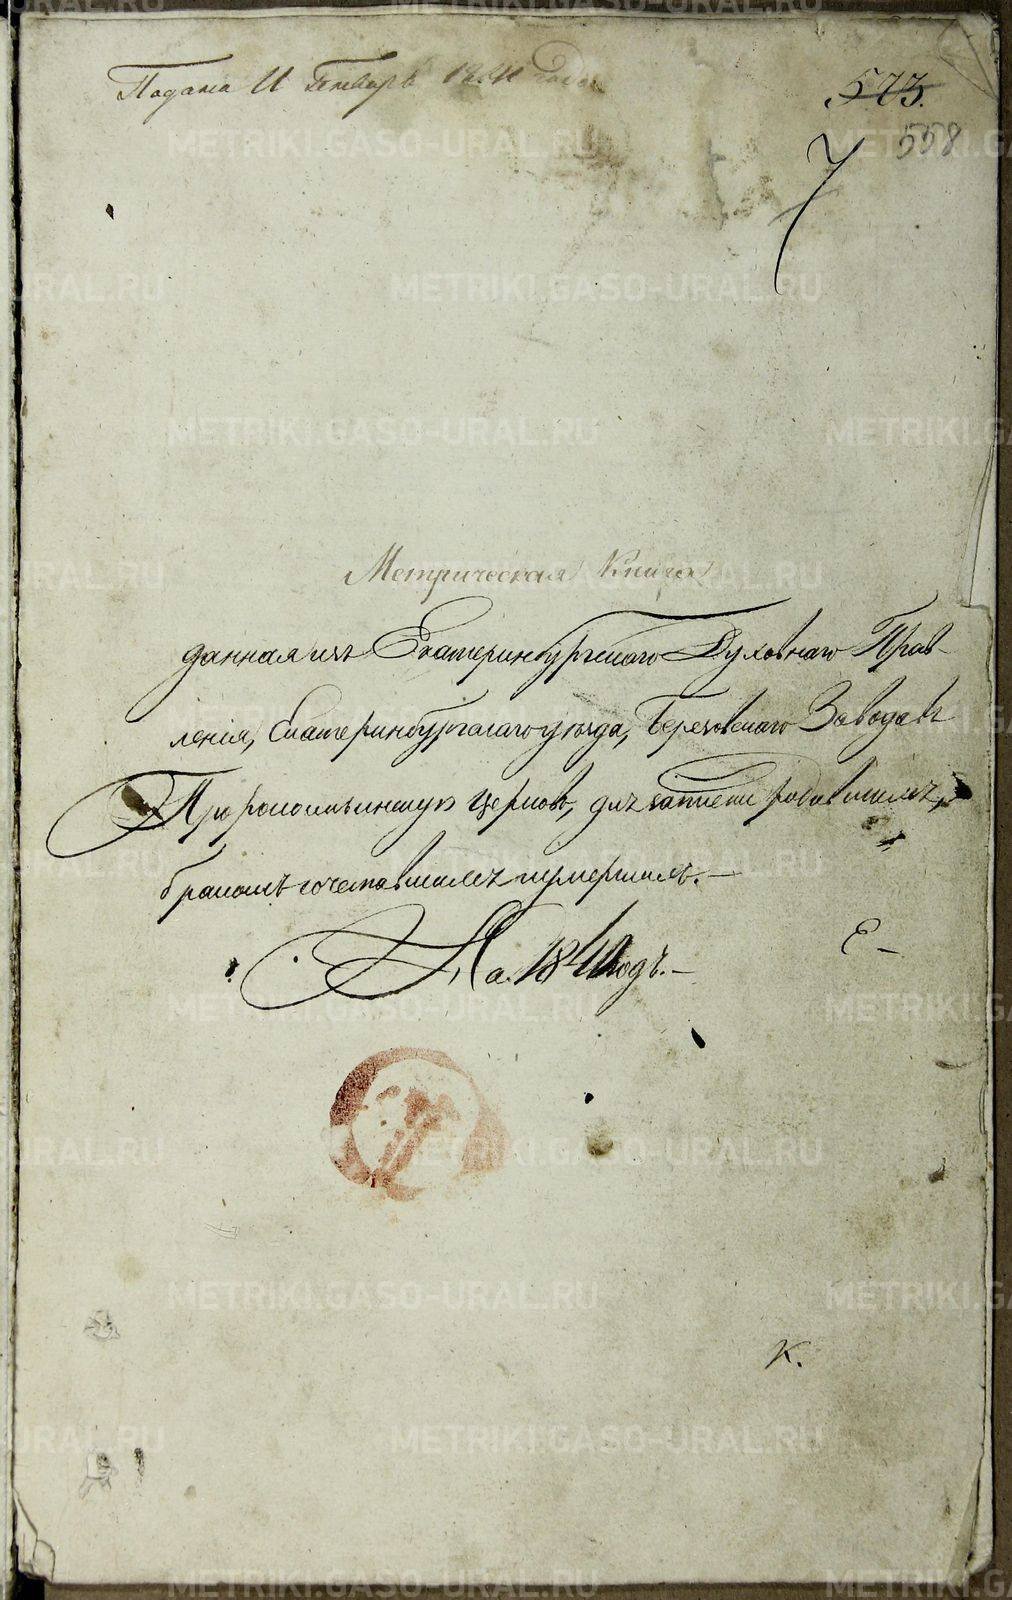 Подана 11 Генваря 1841 года
573.
558
7
Метрическая Книга
данная изъ Екатеринбургскаго Духовнаго Прав-
ленія, Екатеринбургскаго уѣзда, Березовскаго Завода въ
Пророкоильинскую церковь, для записи родившихся,
бракомъ сочетавшихся и умершихъ.—
На 1840 годъ.—
Е—
К.
METRIKI.GASO-URAL.RU